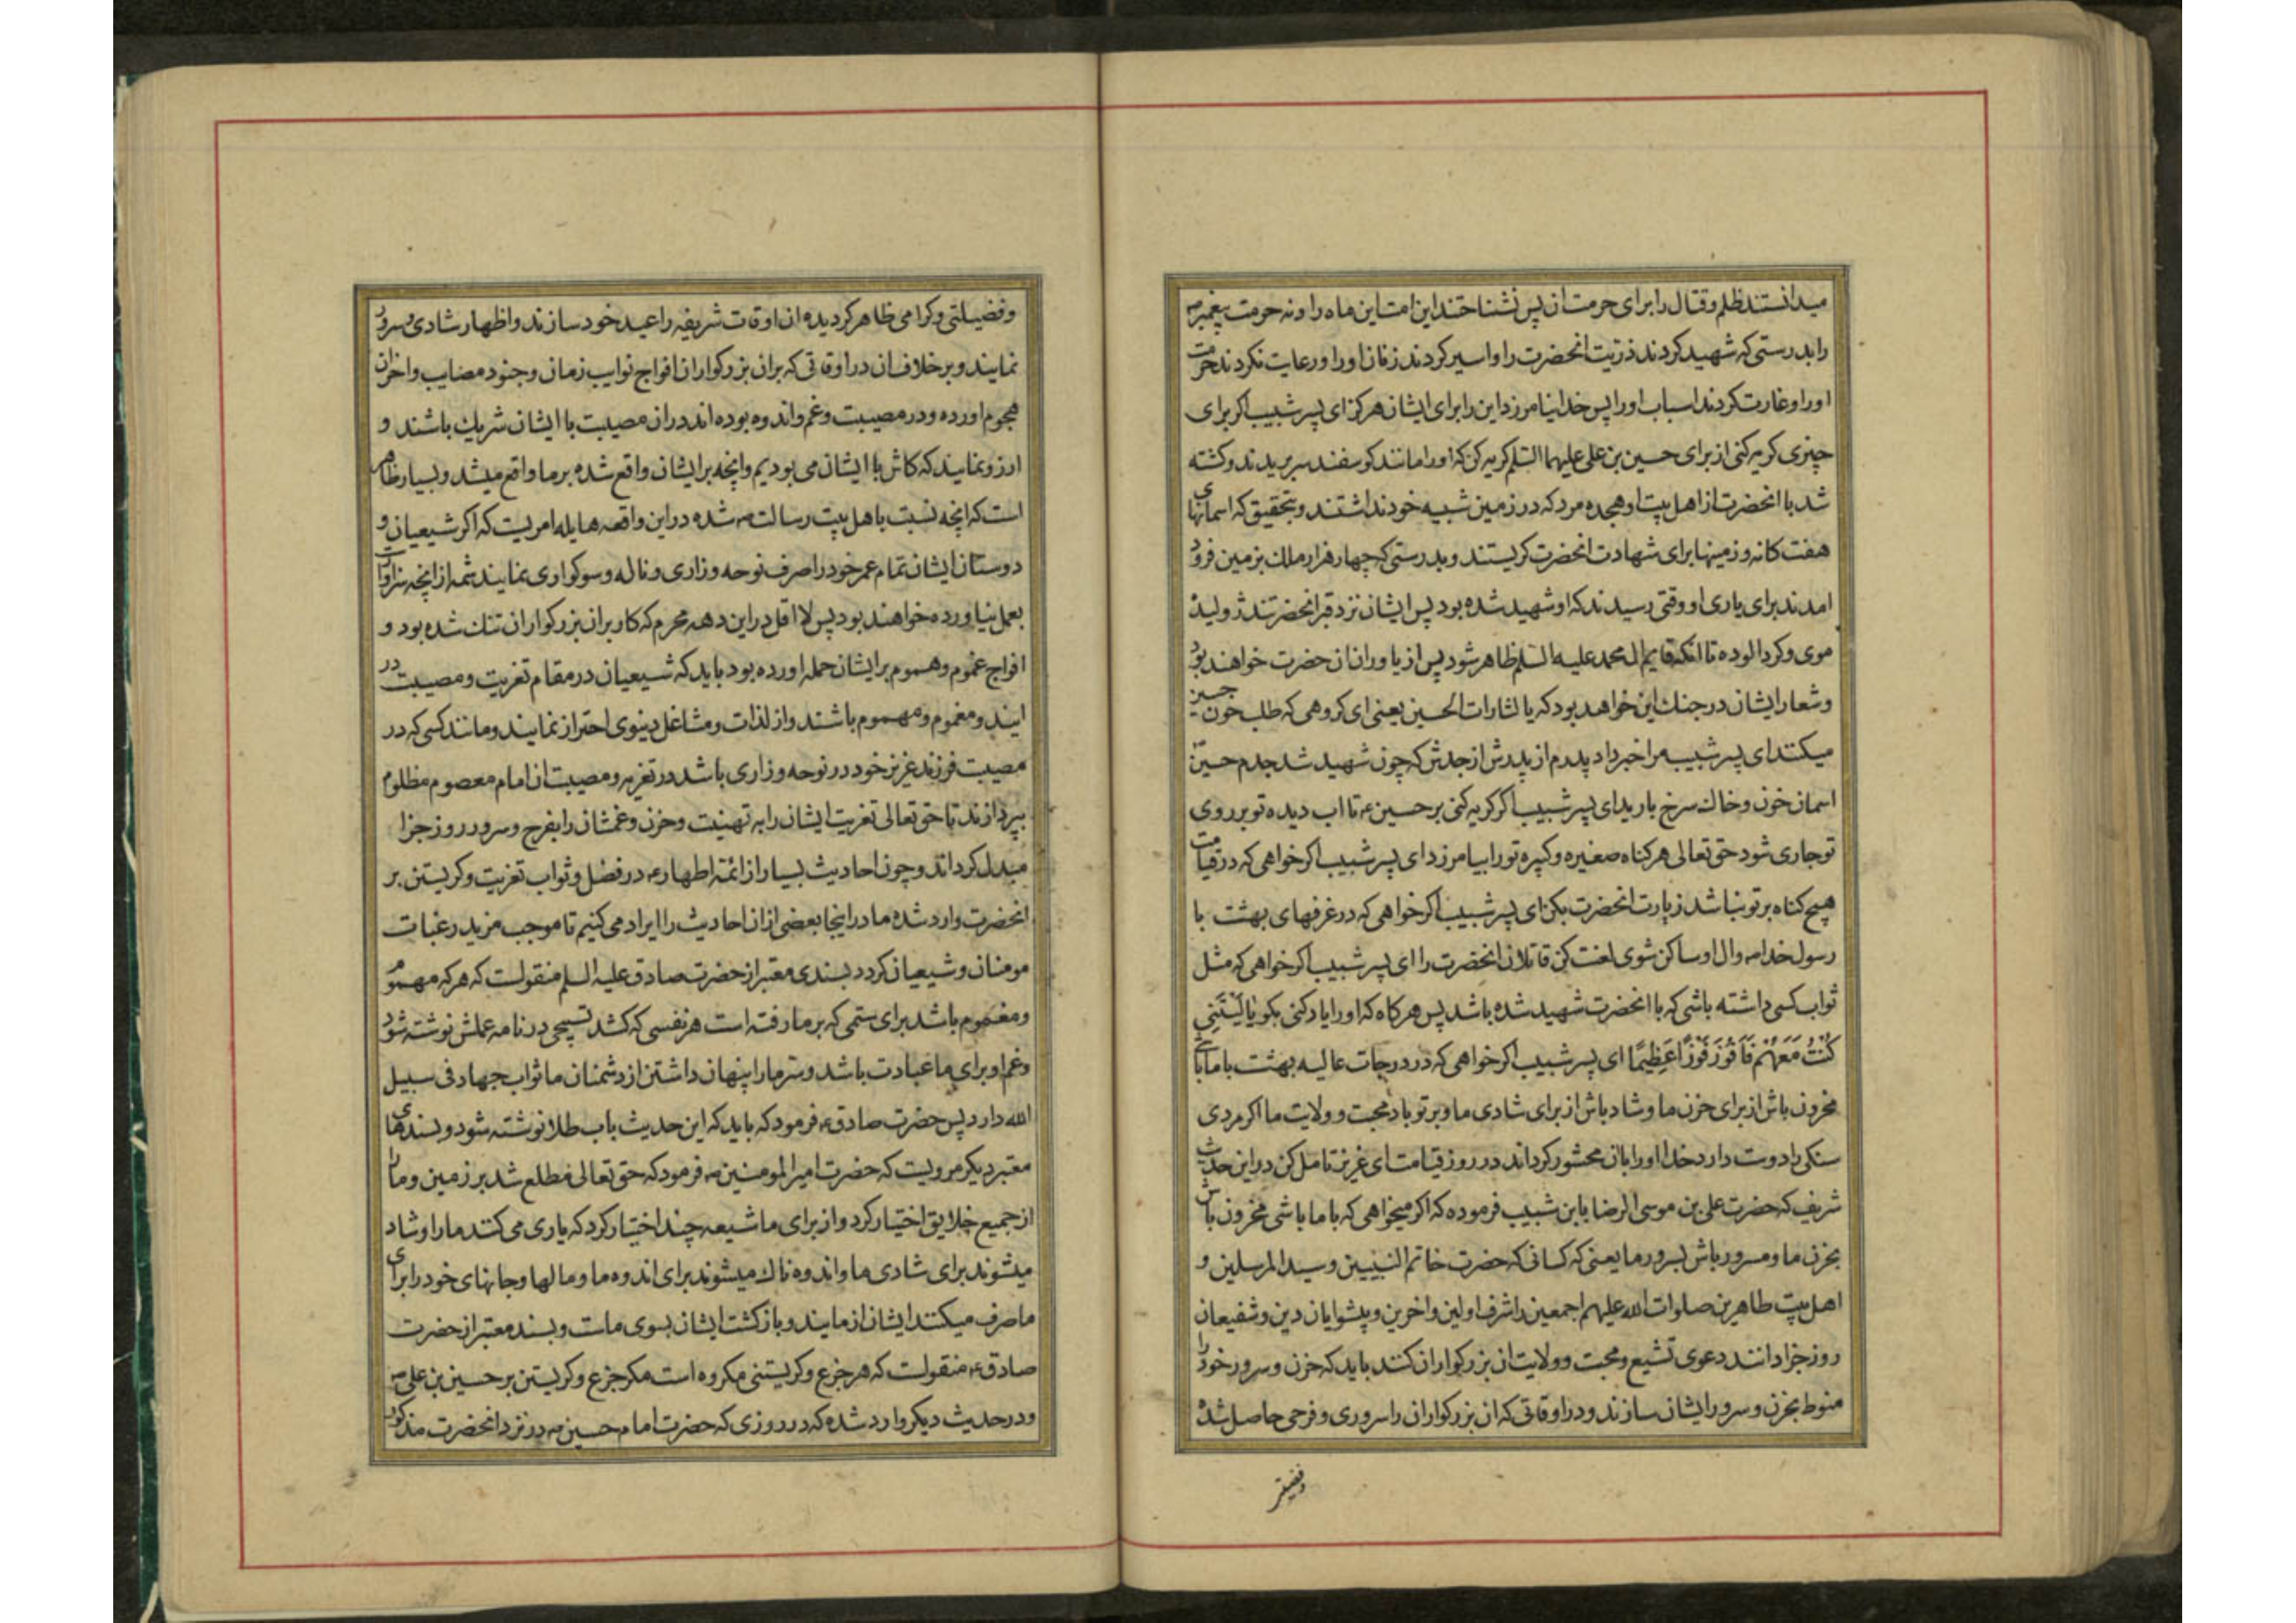 میدانستند ظلم و قتال را برای حرمت ان پس نشناختند این امت این ماه را و نه حرمت پیغمبر ص
را بدرستی که شهید کردند ذریت انحضرت را و اسیر کردند زنان او را و رعایت نکردند حرمت
او را و غارت کردند اسباب او را پس خدا نیامرزد این را برای ایشان هرکز ای پسر شبیب اکر برای
چیزی کریه کنی از برای حسین بن علی علیهما السّلم کریه کن که او را مانند کوسفند سر بریدند و کشته
شد با انحضرت از اهل بیت او هجده مرد که در زمین شبیه خود نداشتند و بتحقیق که اسمانهای
هفت کانه و زمینها برای شهادت انحضرت کریستند و بدرستی که چهار هزار ملك بزمین فرود
امدند برای یاری او وقتی رسیدند که او شهید شده بود پس ایشان نزد قبر انحضرتند ژولیده
موی و کرد الوده تا انکه قایم ال محمد علیه السّلم ظاهر شود پس از یاوران ان حضرت خواهند بود
و شعار ایشان در جنك این خواهد بود که یا لثارات الحسین یعنی ای کروهی که طلب خون حسین
میکنند ای پسر شبیب مرا خبر داد پدرم از پدرش از جدش که چون شهید شد جدم حسین
اسمان خون و خاك سرخ بارید ای پسر شبیب اکر کریه کنی بر حسین ع تا اب دیده تو بر روی
تو جاری شود حق تعالی هر کناه صغیره و کبیره تو را بیامرزد ای پسر شبیب اکر خواهی که در قیامت
هیچ کناه بر تو نباشد زیارت انحضرت بکن ای پسر شبیب اکر خواهی که در غرفهای بهشت با
رسول خدا ص و ال او ساکن شوی لعنت کن قاتلان انحضرت را ای پسر شبیب اکر خواهی که مثل
ثواب کسی داشته باشی که با انحضرت شهید شده باشد پس هرکاه که او را یاد کنی بکو یا لَیْتَنِی
کُنْتُ مَعَهُمْ فَاَفُوزَ فَوْزًا عَظِیمًا ای پسر شبیب اکر خواهی که در درجات عالیه بهشت با ما باشی
محزون باش از برای حزن ما و شاد باش از برای شادی ما و بر تو باد محبت و ولایت ما اکر مردی
سنکی را دوست دارد خدا او را بان محشور کرداند در روز قیامت ای عزیز تامل کن در این حدیث
شریف که حضرت علی بن موسی الرضا بابن شبیب فرموده که اکر میخواهی که با ما باشی محزون باش
بحزن ما و مسرور باش بسرور ما یعنی که کسانی که حضرت خاتم النبیین و سید المرسلین و
اهل بیت طاهرین صلوات الله علیهم اجمعین را اشرف اولین و اخرین و پیشوایان دین و شفیعان
روز جزا دانند دعوی تشیع و محبت و ولایت ان بزرکواران کنند باید که حزن و سرور خود را
منوط بحزن و سرور ایشان سازند و در اوقاتی که ان بزرکواران را سروری و فرحی حاصل شده
و فضیلتی
و فضیلتی و کرامی ظاهر کردیده ان اوقات شریفه را عید خود سازند و اظهار شادی و سرور
نمایند و بر خلاف ان در اوقاتی که بران بزرکواران افواج نوایب زمان و جنود مصایب و احزان
هجوم اورده و در مصیبت و غم و اندوه بوده اند دران مصیبت با ایشان شریك باشند و
ارزو نمایند که کاش با ایشان می بودیم و انچه بر ایشان واقع شده بر ما واقع میشد و بسیار ظاهر
است که انچه نسبت باهل بیت رسالت ص شده در این واقعه هایله امریست که اکر شیعیان و
دوستان ایشان تمام عمر خود را صرف نوحه و زاری و ناله و سوکواری نمایند شمه از انچه سزاوار است
بعمل نیاورده خواهند بود پس لا اقل در این دهه محرم که کار بران بزرکواران تنك شده بود و
افواج غموم و هموم بر ایشان حمله اورده بود باید که شیعیان در مقام تعزیت و مصیبت در
ایند و مغموم و مهموم باشند و از لذات و مشاغل دینوی احتراز نمایند و مانند کسی که در
مصیبت فرزند عزیز خود در نوحه و زاری باشد در تعزیه و مصیبت ان امام معصوم مظلوم
بپردازند تا حق تعالی تعزیت ایشان را به تهنیت و حزن و غمشان را بفرح و سرور روز جزا
مبدل کرداند و چون احادیث بسیار از ائمه اطهار ع در فضل و ثواب تعزیت و کریستن بر
انحضرت وارد شده ما در اینجا بعضی از ان احادیث را ایراد می کنیم تا موجب مزید رغبات
مومنان و شیعیان کردد بسندی معتبر از حضرت صادق علیه السلم منقولست که هر که مهموم
و مغموم باشد برای ستمی که بر ما رفته است هر نفسی که کشد تسبیحی در نامه عملش نوشته شود
و غم او برای ما عبادت باشد و سرّ ما را پنهان داشتن از دشمنان ما ثواب جهاد فی سبیل
الله دارد پس حضرت صادق ع فرمود که باید که این حدیث باب طلا نوشته شود و بسندهای
معتبر دیکر مرویست که حضرت امیر المومنین ص فرمود که حق تعالی مطلع شد بر زمین و ما را
از جمیع خلایق اختیار کرد و از برای ما شیعه چند اختیار کرد که یاری می کنند ما را و شاد
میشوند برای شادی ما و اندوه ناك میشوند برای اندوه ما و مالها و جانهای خود را برای
ما صرف میکنند ایشان از مایند و بازکشت ایشان بسوی ماست و بسند معتبر از حضرت
صادق ع منقولست که هر جزع و کریستنی مکروه است مکر جزع و کریستن بر حسین بن علی ص
و در حدیث دیکر وارد شده که در روزی که حضرت امام حسین ص در نزد انحضرت مذکور